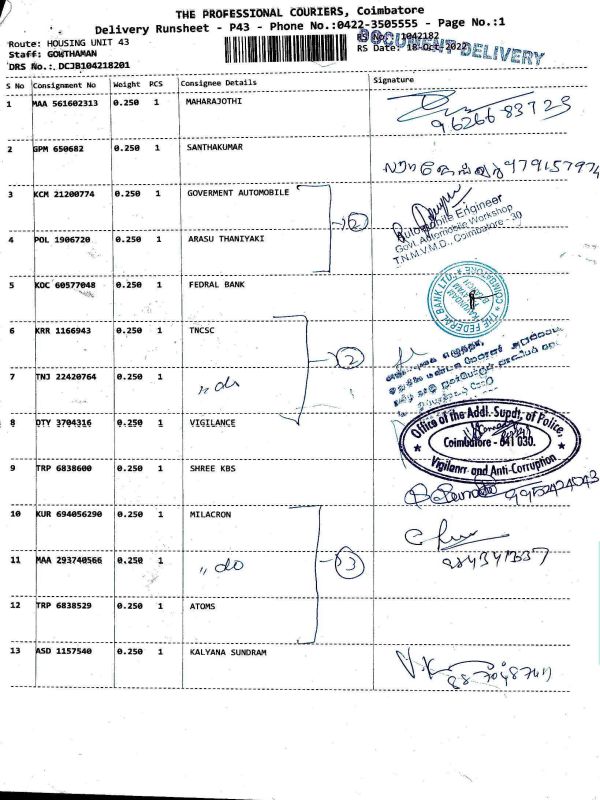 THE PROFESSIONAL COURIERS, Coimbatore
Delivery Runsheet - P43 - Phone No.:0422-3505555 - Page No.:1
Route: HOUSING UNIT 43
RS No.: 1042182
Staff: GOWTHAMAN
RS Date: 18-Oct-2022
DOCUMENT DELIVERY
DRS No.: DCJB104218201
S No Consignment No Weight PCS Consignee Details Signature
1 MAA 561602313 0.250 1 MAHARAJOTHI
9626683723
2 GPM 650682 0.250 1 SANTHAKUMAR
3 KCM 21200774 0.250 1 GOVERMENT AUTOMOBILE
2
Automobile Engineer
Govt. Automobile Workshop
T.N.M.V.M.D., Coimbatore - 30
4 POL 1906720 0.250 1 ARASU THANIYAKI
5 KOC 60577048 0.250 1 FEDRAL BANK
THE FEDERAL BANK LTD. COIMBATORE
6 KRR 1166943 0.250 1 TNCSC
2
7 TNJ 22420764 0.250 1 ,, do
8 DTY 3704316 0.250 1 VIGILANCE
Office of the Addl. Supdt. of Police,
Coimbatore - 641 030.
Vigilance and Anti-Corruption
9 TRP 6838600 0.250 1 SHREE KBS
9952424043
10 KUR 694056290 0.250 1 MILACRON
11 MAA 293740566 0.250 1 ,, do
3
12 TRP 6838529 0.250 1 ATOMS
13 ASD 1157540 0.250 1 KALYANA SUNDRAM